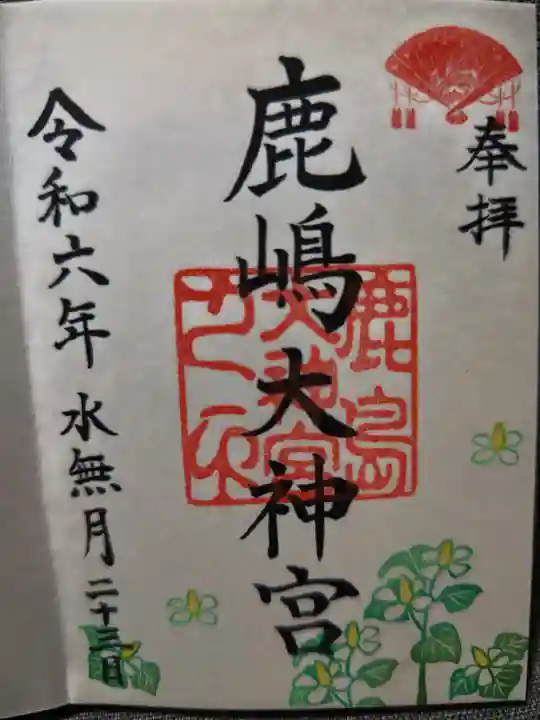 奉拝
鹿嶋大神宮
鹿島
大神宮
令和六年 水無月二十三日